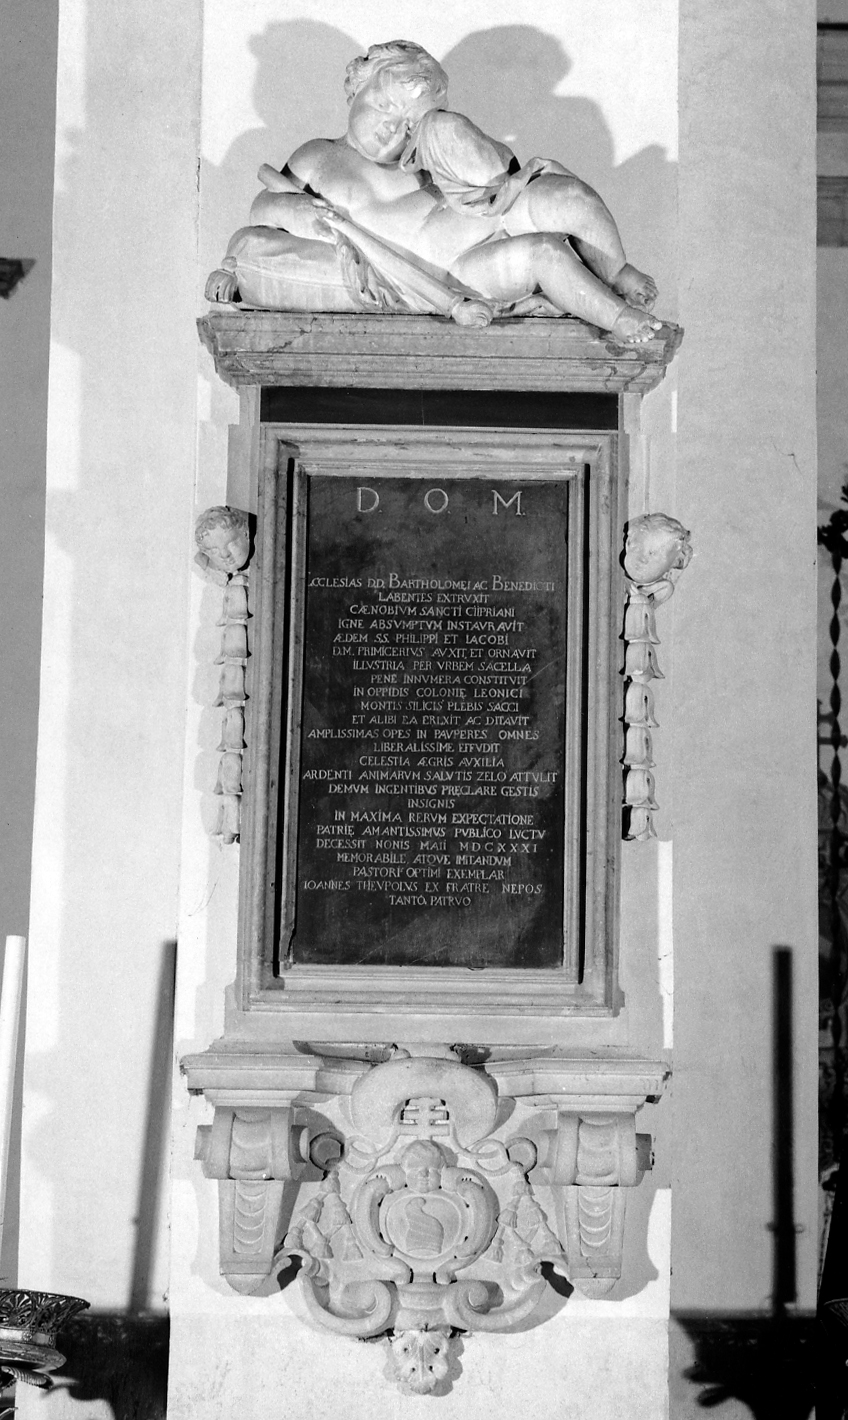 D. O. M.
ÆCCLESIAS D.D. BARTHOLOMEI AC BENEDICTI
LABENTES EXTRVXIT
CÆNOBIVM SANCTI CIPRIANI
IGNE ABSVMPTVM INSTAVRAVIT
ÆDEM SS. PHILIPPI ET IACOBI
D.M. PRIMICERIVS AVXIT, ET ORNAVIT
ILLVSTRIA PER VRBEM SACELLA
PENE INNVMERA CONSTITVIT
IN OPPIDIS COLONIĘ LEONICI
MONTIS SILICIS PLEBIS SACCI
ET ALIBI EA EREXIT AC DITAVIT
AMPLISSIMAS OPES IN PAVPERES OMNES
LIBERALISSIME EFFVDIT
CELESTIA ÆGRIS AVXILIA
ARDENTI ANIMARVM SALVTIS ZELO ATTVLIT
DEMVM INGENTIBVS PRĘCLARE GESTIS
INSIGNIS
IN MAXIMA RERVM EXPECTATIONE
PATRIĘ AMANTISSIMVS PVBLICO LVCTV
DECESSIT NONIS MAII MDCXXXI
MEMORABILE ATQVE IMITANDVM
PASTORI OPTIMI EXEMPLAR
IOANNES THEVPOLVS EX FRATRE NEPOS
TANTO PATRVO